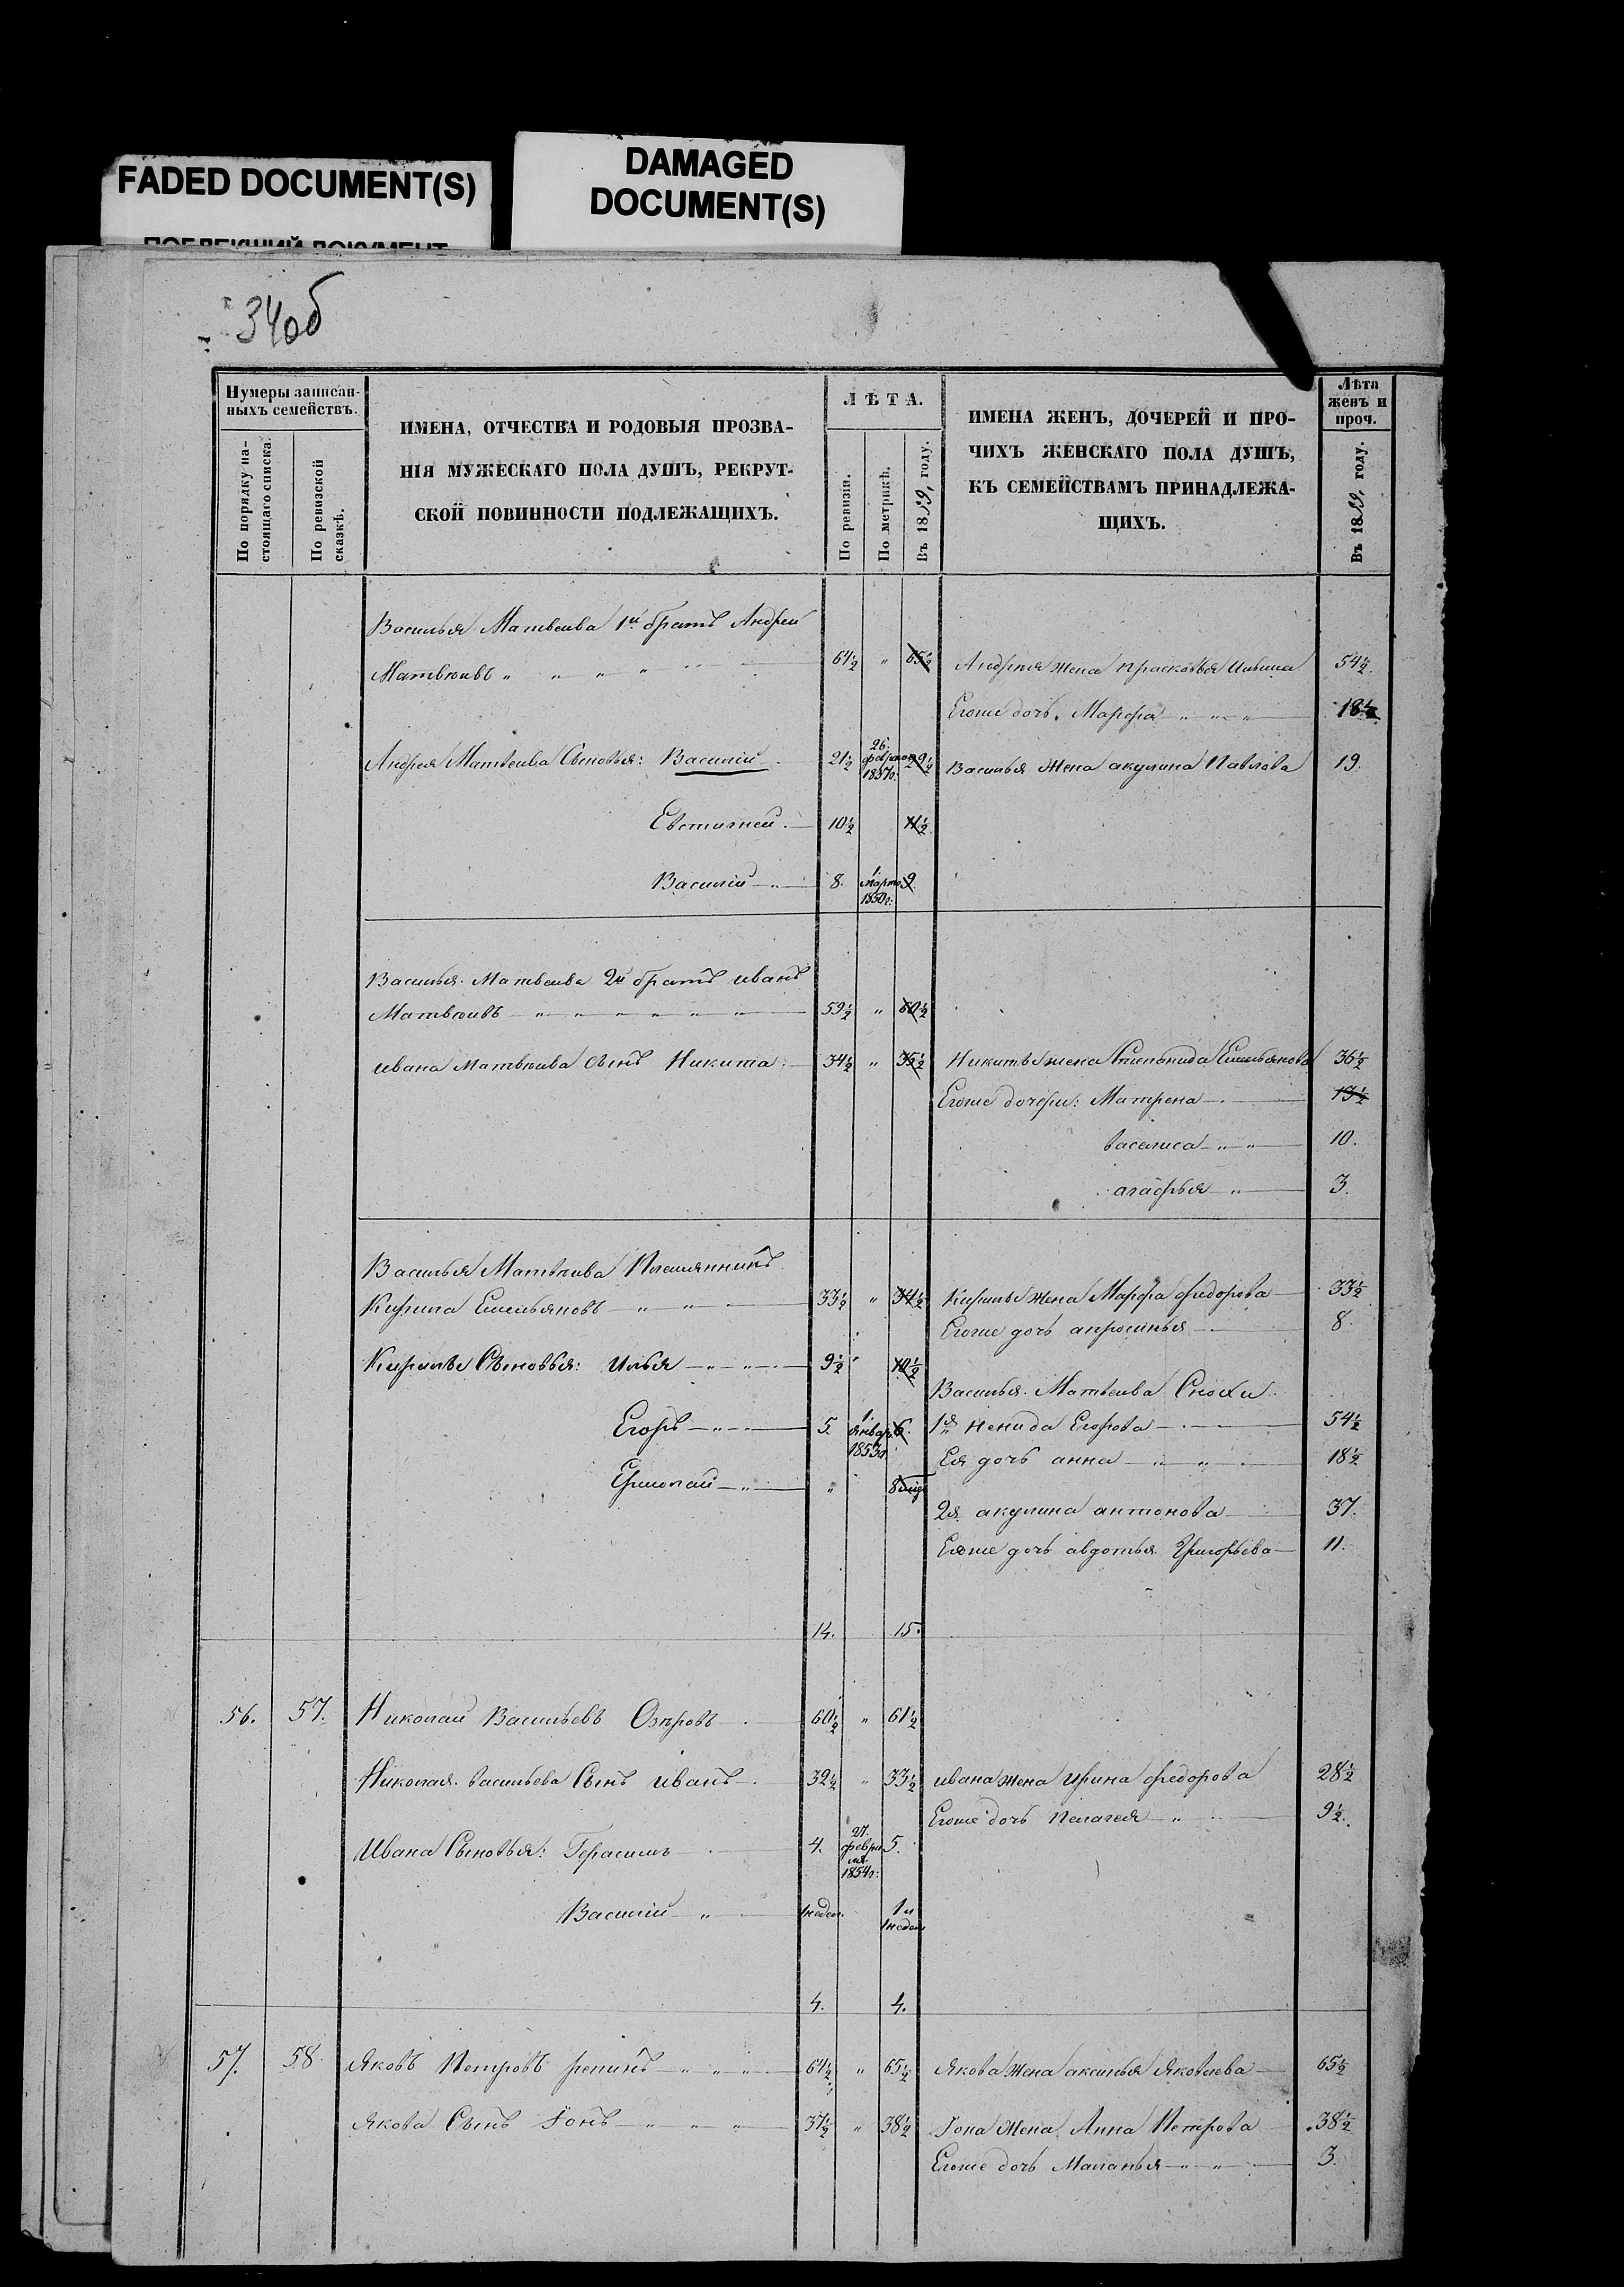 FADED DOCUMENT(S)
DAMAGED
DOCUMENT(S)
34об
Нумеры записан-
ныхъ семействъ.
По порядку на-
стоящаго списка.
По ревизской
сказкѣ.
ИМЕНА, ОТЧЕСТВА И РОДОВЫЯ ПРОЗВА-
НІЯ МУЖЕСКАГО ПОЛА ДУШЪ, РЕКРУТ-
СКОЙ ПОВИННОСТИ ПОДЛЕЖАЩИХЪ.
ЛѢТА.
По ревизіи.
По метрикѣ.
Въ 1859, году.
ИМЕНА ЖЕНЪ, ДОЧЕРЕЙ И ПРО-
ЧИХЪ ЖЕНСКАГО ПОЛА ДУШЪ,
КЪ СЕМЕЙСТВАМЪ ПРИНАДЛЕЖА-
ЩИХЪ.
Лѣта
женъ и
проч.
Въ 1859, году.
Василья Матвеива 1й братъ Андрей
Матвѣивъ " " " " 64½ " 65½ Андрея жена прасковья 54½
Егоже дочь Марфа " " " 18½
Андрея Матвеива Сыновья: Василій 21½ 26 1837г. 22½ Василья жена акулина Павлова 19.
Евстигней. 10½ 11½
Василій " 8. 1 марта 1850г: 9.
Василья Матвеива 2й братъ иванъ
Матвѣивъ " " " " " " 59½ " 60½
ивана Матвѣива Сынъ Никита: 34½ " 35½ Никиты жена Степанида Емельянова 36½
Егоже дочери: Матрена 13½
василиса " " 10.
агафья " 3.
Василья Матвѣива Племянникъ
Кирила Емельяновъ " " " 33½ " 34½ Кирилы жена Марфа федорова 33½
Егоже дочь апросинья 8.
Кирилы Сыновья: Илья " " " 9½ " 10½
Василья Матвеива Снохи
Егоръ " " 5. 1. Январ. 1853г. 6. 1я Ненида Егорова 54½
Ея дочь анна " " 18½
Ермолай " " 8 мѣс
2я акулина антонова 37.
Еяже дочь авдотья Григорьева 11.
14. 15.
56. 57. Николай Васильевъ Озѣровъ 60½ " 61½
Николая Васильева Сынъ иванъ 32½ " 33½ ивана жена Ирина федорова 28½
Егоже дочь Пелагея " 9½
Ивана Сыновья: Герасимъ 4. 27. февраля 1854г: 5.
Василій " 1недел. 1 и 1недели
4. 4.
57. 58. Яковъ Петровъ репинъ " " " 64½ " 65½ Якова жена аксинья Яковлева 65½
Якова Сынъ Іонъ " " " 37½ " 38½ Іона жена Анна Петрова 38½
Егоже дочь Маланья " " 3.